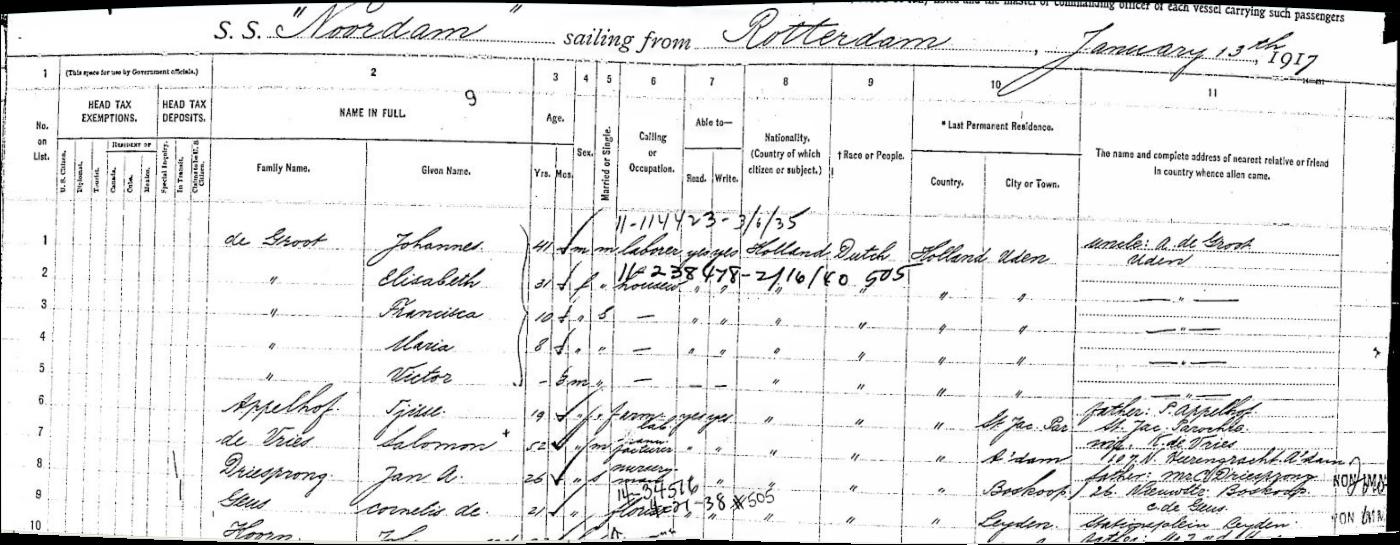 commanding officer of each vessel carrying such passengers
S. S. "Noordam" sailing from Rotterdam, January 13th, 1917
1 (This space for use by Government officials.) 2 3 4 5 6 7 8 9 10 11
9
HEAD TAX EXEMPTIONS. HEAD TAX DEPOSITS. NAME IN FULL. Age. Sex. Married or Single. Calling or Occupation. Able to— Nationality. (Country of which citizen or subject.) † Race or People. * Last Permanent Residence. The name and complete address of nearest relative or friend in country whence alien came.
No. on List. U. S. Citizen. Diplomat. Tourist. RESIDENT OF Canada. Cuba. Mexico. Special Inquiry. In Transit. Family Name. Given Name. Yrs. Mos. Read. Write. Country. City or Town.
11-114423-3/6/35
1 de Groot Johannes 41 m m laborer yes yes Holland Dutch Holland Uden uncle: A. de Groot
Uden
11-238478-2/16/40 505
2 " Elisabeth 31 f " housew " " " " " " — " —
3 " Francisca 10 " s — " " " " " " — " —
4 " Maria 8 " " — " " " " " " — " —
5 " Victor - 3 m " — — — " " " " — " —
6 Appelhof Tjisse 19 " s farm lab. yes yes " " " St. Jac. Par father: P. Appelhof
St. Jac. Parochie
7 de Vries Salomon + 52 " m " " " " " A'dam wife: K. de Vries
127 N. Heerengracht A'dam
8 Driesprong Jan A. 26 " s nursery man " " " " " Boskoop father: Driesprong
26 Boskoop
NON IMM
11-34516
9 Geus Cornelis de 21 " " florist -21-38 #505 " " " " " Leyden c. de Geus
Stationsplein Leyden
NON IMM
10 Hoorn